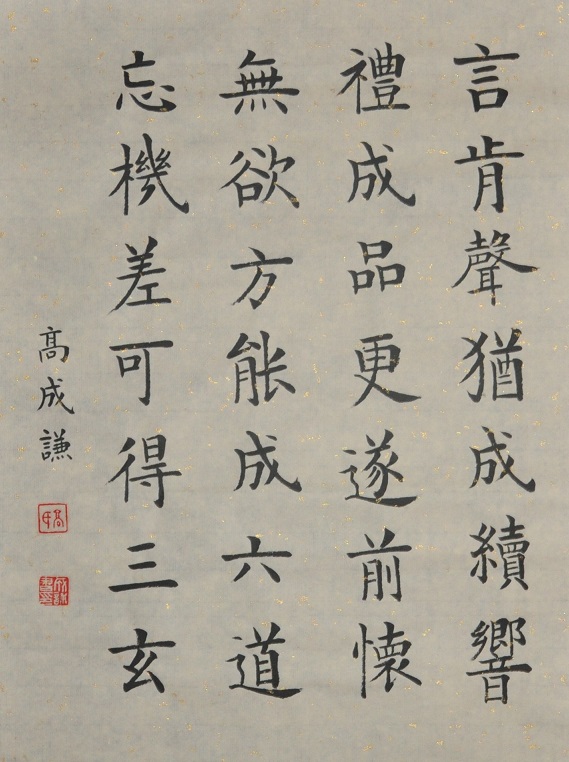 言肯聲猶成續響
禮成品更遂前懷
無欲方能成六道
忘機差可得三玄
高成謙